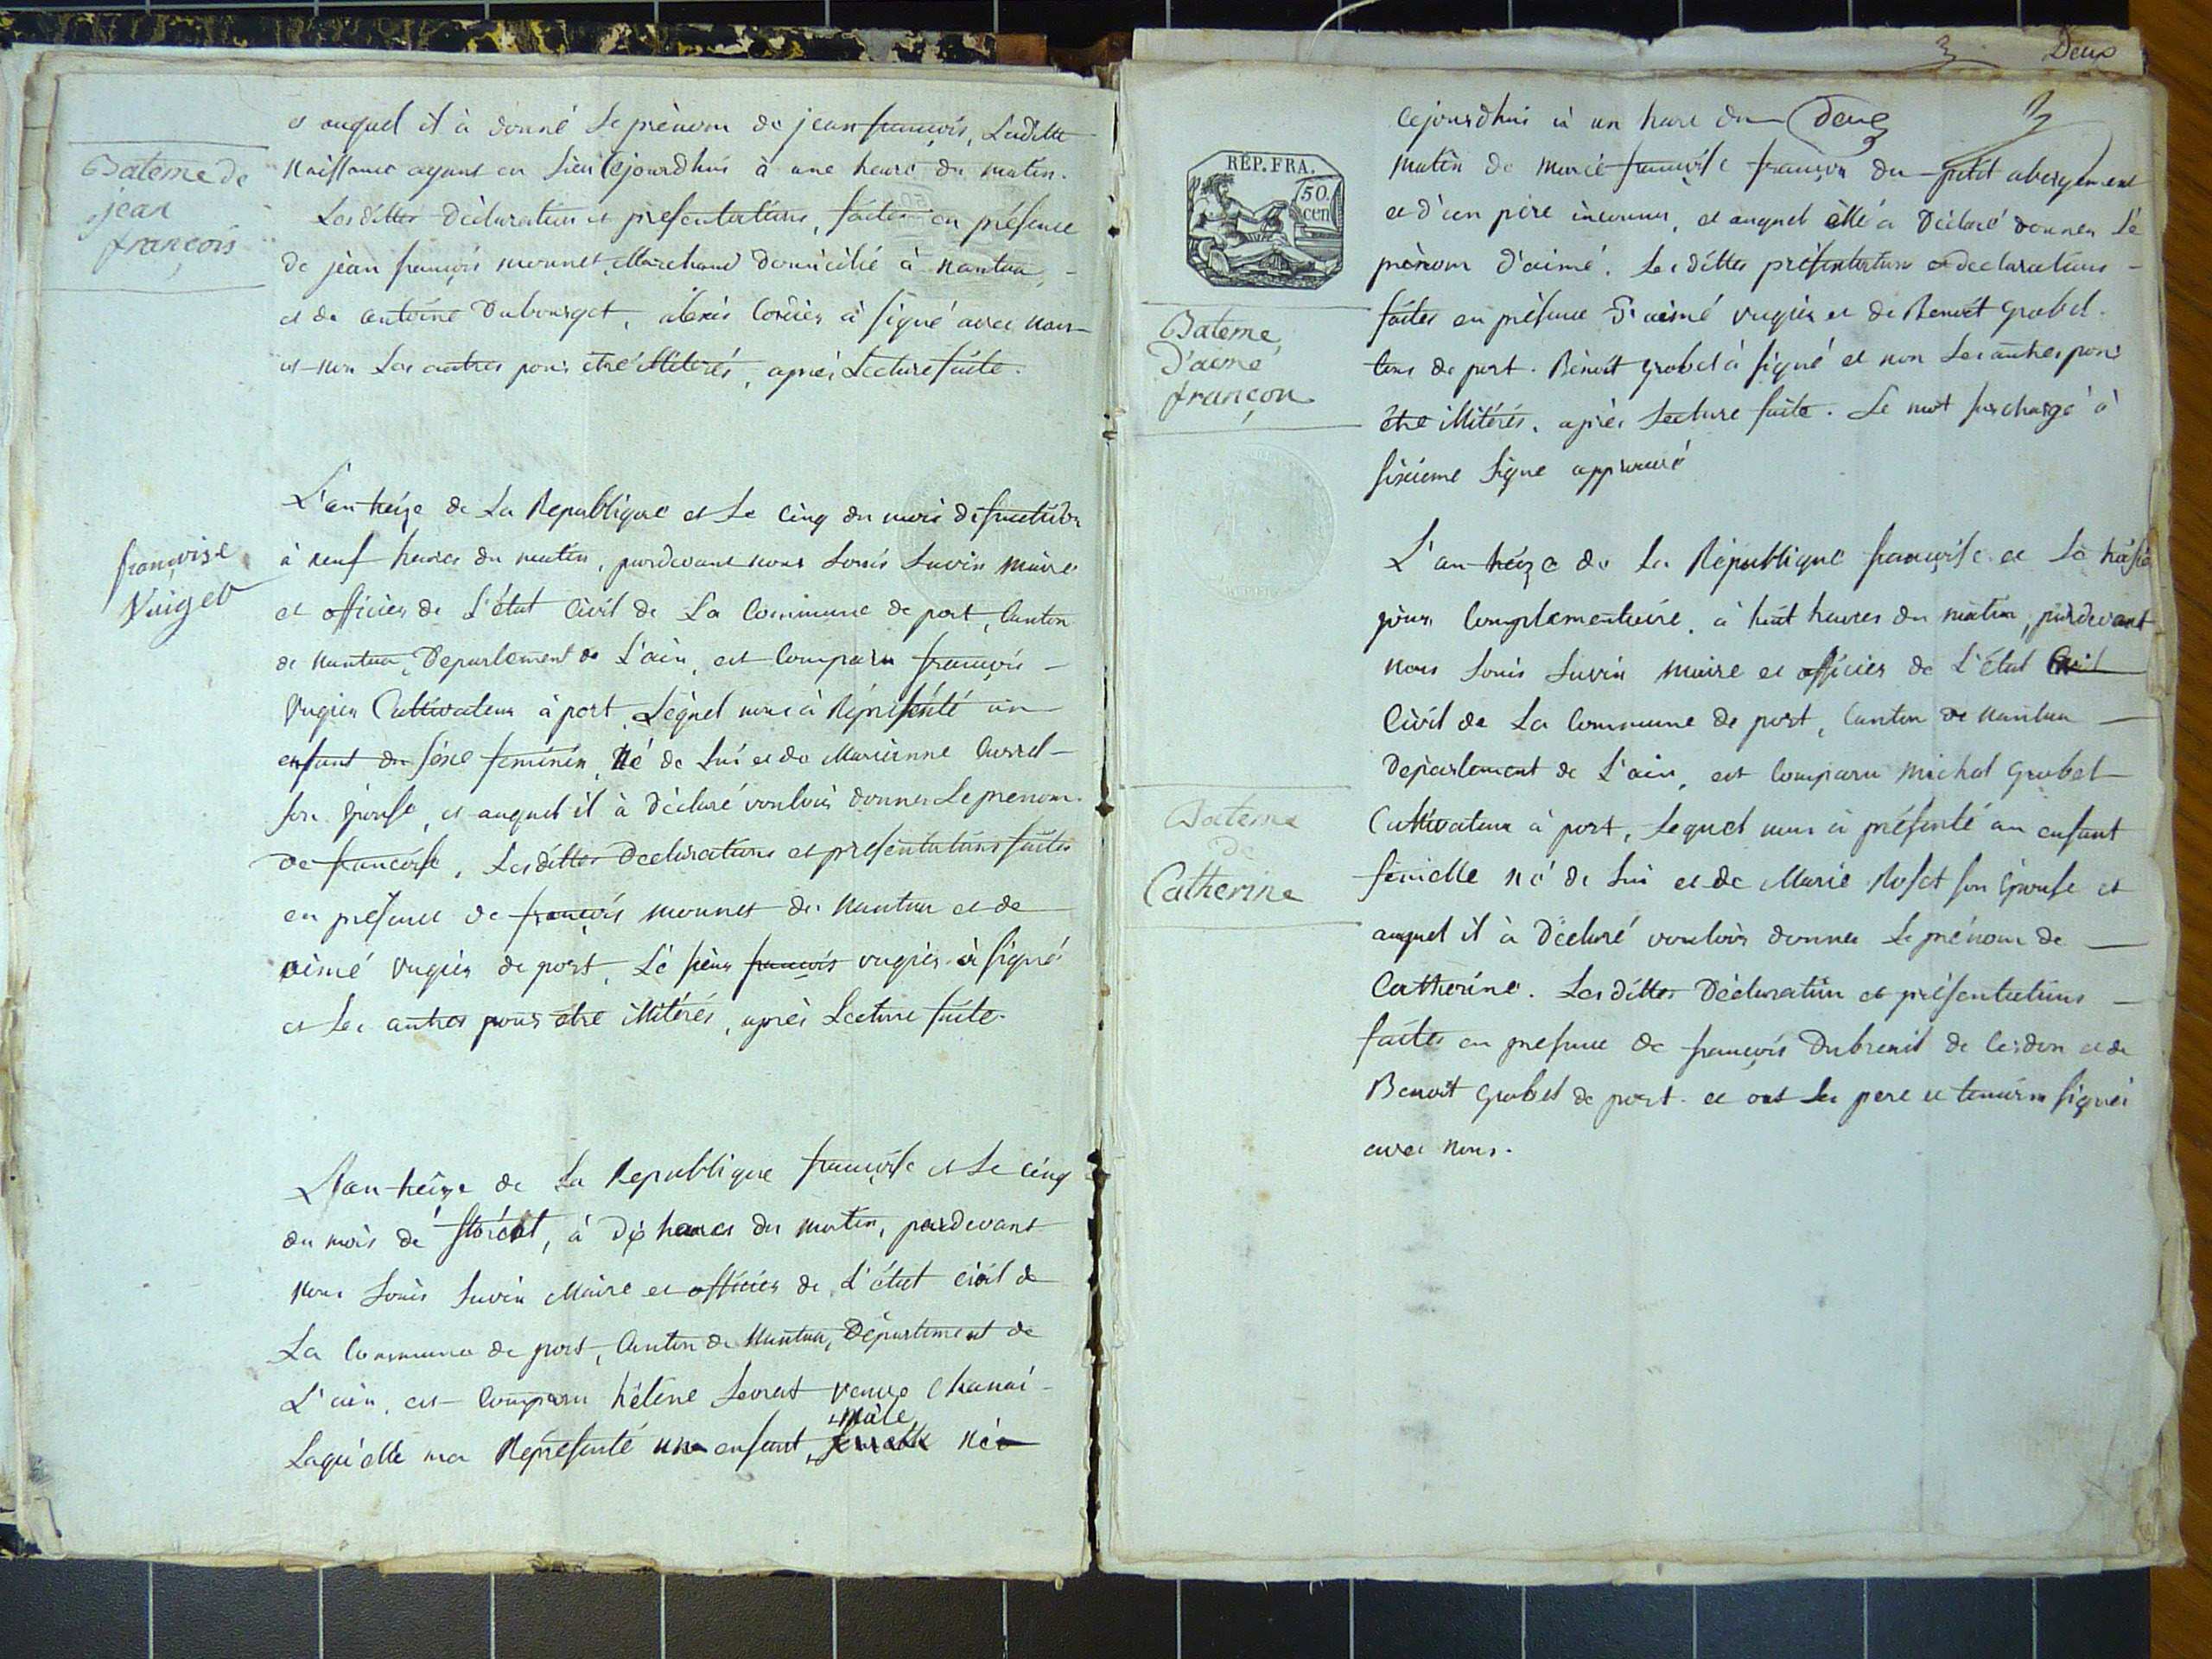 et auquel il à donné Le prénom de jean françois, Laditte
Naissance ayant eu Lieu Cejourdhui à une heure du matin.
Les dittes Déclarations et présentations, faites en présence
de jéan françois monnet, Marchand domicilié à Nantua,
et de antoine Dubourget, alexis Cordier à signé avec nous
et non Les autres pour être illitérés, après Lecture faite.
Bateme de
jean
françois
L'an treize de La Republique et Le cinq du mois de fructidor
à neuf heures du matin, pardevant nous Louis Savin maire
et officier de L'état Civil de La Commune de port, Canton
de nantua, Departement de L'ain, est Comparu françois
Vugier Cultivateur à port, Lequel nous à Réprésenté un
enfant du séxe feminin, Né de Lui et de Marianne Carrel
son Epouse, et auquel il à déclaré vouloir donner Le prenom
de francoise, Les dittes Declarations et presentations faites
en présence de françois monnet de Nantua et de
aimé vugier de port, Lé sieur francois vugier à signé
et Les autres pour être illitérés, après Lecture faite.
francoise
Vuiget
L'an treize de La Republique françoise et Le cinq
du mois dé floréal, à dix heures du matin, pardevant
nous Louis Savin Maire et officier de L'état civil de
La Commune de port, Canton de Nantua, Département de
L'ain, est Comparu hélène Levrat veuve Chanai
Laquélle ma Représenté un enfant, femelle né
mâle
3 Deux
Cejourdhui à un heure du deux
matin de marie françoise françon du petit abergement
et d'un père inconnu, et auquel élle à Déclaré donner Lé
prénom d'aimé. Les dittes présentations et declarations
faites en présence D'aimé vugier et de Benoit Grobel
tous de port. Bénoit Grobel à signé et non Les autres pour
être illitérés, après Lecture faite. Le mot surchargé à
sixieme Ligne approuvé
RÉP. FRA.
50.
cen
Bateme
D'aemé
françon
L'an treize de La République françoise et Lé troisiè
jour Complementaire, à huit heures du matin, pardevant
nous Louis Savin maire et officier de L'état Civil
Civil de La Commune de port, Canton de nantua
Departement de L'ain, est Comparu michel Grobel
Cultivateur à port, Lequel nous à présenté un enfant
femelle né de Lui et de Marie Roset son Epouse et
auquel il à Déclaré vouloir donner Le prénom de
Catherine. Les dittes Déclaration et présentations
faites en présence de françois Dubreuil de Cerdon et de
Benoit Grobel de port et ont Les pere et temoins signés
avec nous.
Bateme
De
Catherine